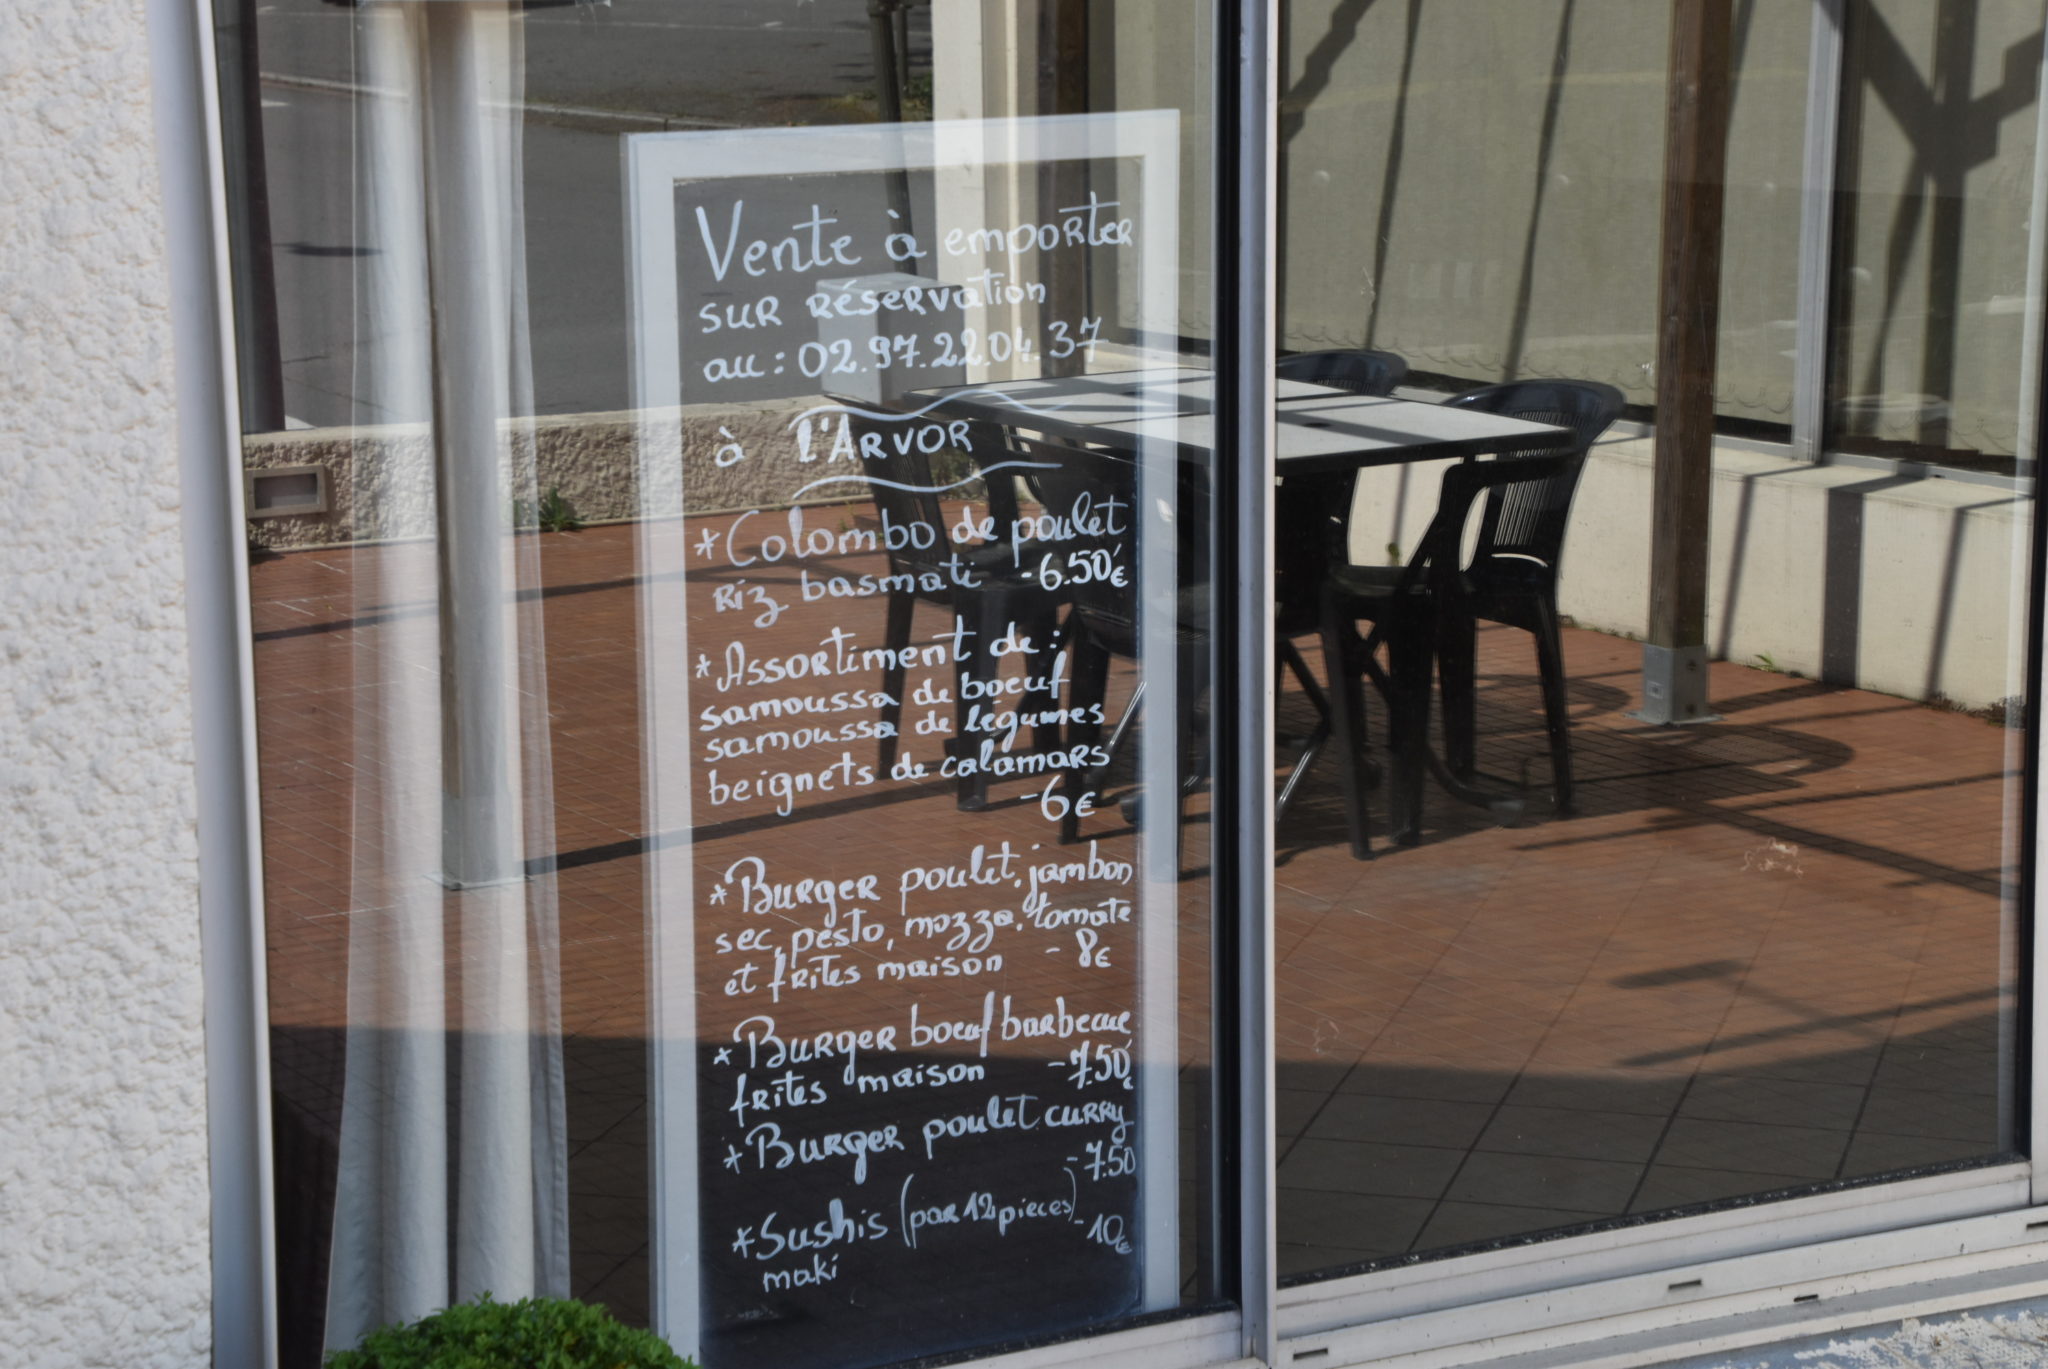 Vente à emporter
sur réservation
au : 02.97.22.04.37
à l'Arvor
*Colombo de poulet
riz basmati -6.50€
*Assortiment de :
samoussa de boeuf
samoussa de légumes
beignets de calamars
-6€
*Burger poulet, jambon
sec, pesto, mozza, tomate
et frites maison - 8€
*Burger boeuf barbecue
frites maison -7.50€
*Burger poulet curry
-7.50
*Sushis (par 12 pieces) -10€
maki